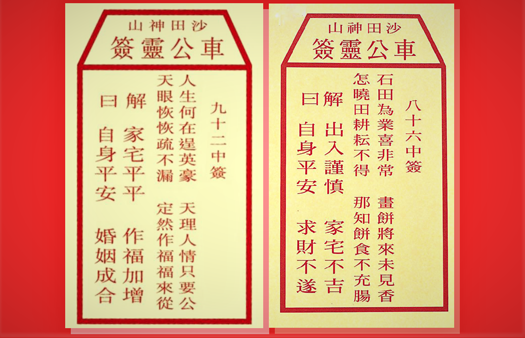 沙田神山
車公靈簽
八十六中簽
石田為業喜非常 畫餅將來未見香
怎曉田耕耘不得 那知餅食不充腸
解 出入謹慎 家宅不吉
曰 自身平安 求財不遂
沙田神山
車公靈簽
九十二中簽
人生何在逞英豪 天理人情只要公
天眼恢恢疏不漏 定然作福福來從
解 家宅平平 作福加增
曰 自身平安 婚姻成合